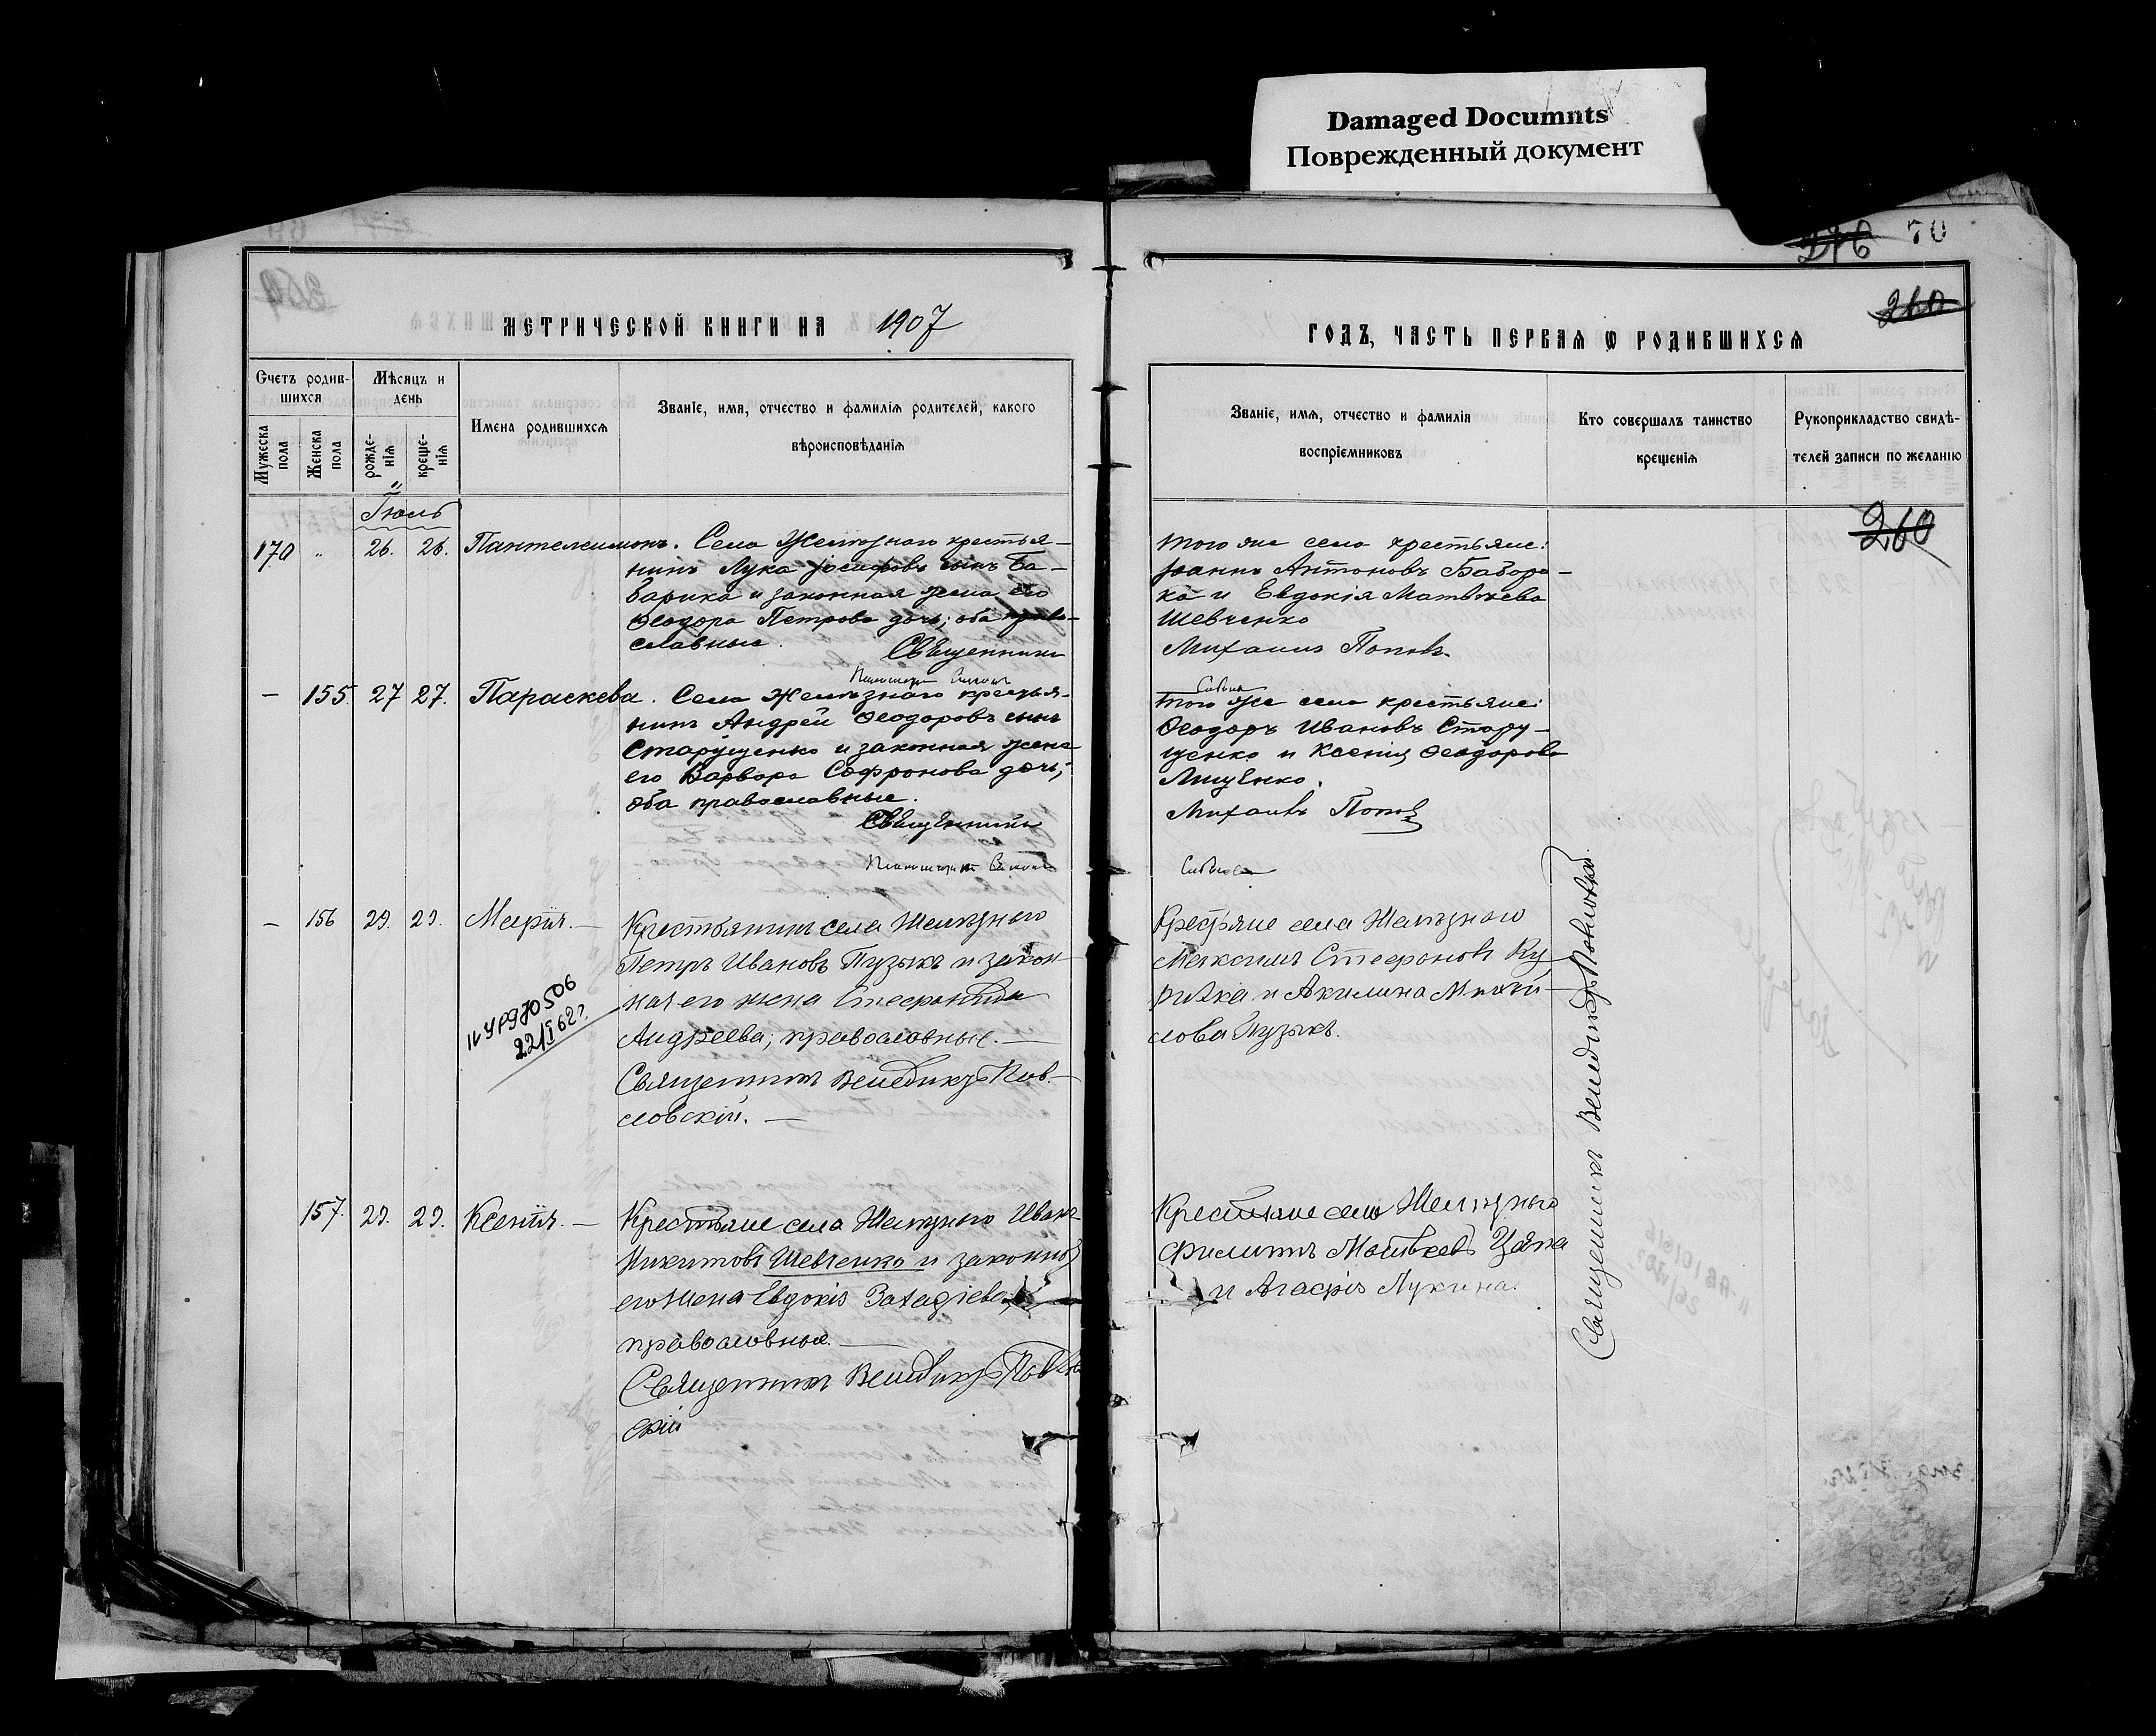 Damaged Documnts
Поврежденный документ
276 70
260
МЕТРИЧЕСКОЙ КНИГИ НА 1907
ГОДЪ, ЧАСТЬ ПЕРВАЯ Ѡ РОДИВШИХСЯ
Счетъ родив-
шихся
Мужеска пола
Женска пола
Мѣсяцъ и
день
рожде-
нія
креще-
нія
Имена родившихся
Званіе, имя, отчество и фамилія родителей, какого
вѣроисповѣданія
Званіе, имя, отчество и фамилія
воспріємниковъ
Кто совершалъ таинство
крещенія
Рукоприкладство свидѣ-
телей записи по желанію
Іюль
260
170 „ 26. 26. Пантелеимонъ. Села Желѣзнаго крестья-
нинъ Лука Іосифовъ сынъ Ба-
барика и законная жена его
Ѳеодора Петрова дочь; оба право-
славные.
Священникъ
того же села крестьяне:
Іоаннъ Антоновъ
и Евдокія Матвѣева
Шевченко
Михаилъ Поповъ
— 155. 27 27. Параскева. Села Желѣзнаго крестья-
нинъ Андрей Ѳеодоровъ сынъ
Старущенко и законная жена
его Варвара Софронова дочь;
оба православные.
Священникъ
того же села крестьяне:
Ѳеодоръ Ивановъ Стару-
щенко и Ксенія Ѳеодорова
Лищенко.
Михаилъ Поповъ
— 156 29. 29. Марія. — Крестьянинъ села Желѣзнаго
Петръ Ивановъ Пузыкъ и закон
ная его жена Стефанида
Андреева; православные. —
Священникъ Венедиктъ Пов-
ловскій. —
506
22/I 62 г.
Крестьяне села Желѣзнаго
Максимъ Стефановъ
и Акилина
Пузыкъ.
157. 29. 29. Ксенія. — Крестьяне села Желѣзнаго Иванъ
Никитовъ Шевченко и законная
его жена Евдокія
православные. —
Священникъ Венедиктъ
скій
Крестьяне села Желѣзнаго
Филиппъ Матвѣевъ
и Агафія Лукина.
Священникъ Венедиктъ